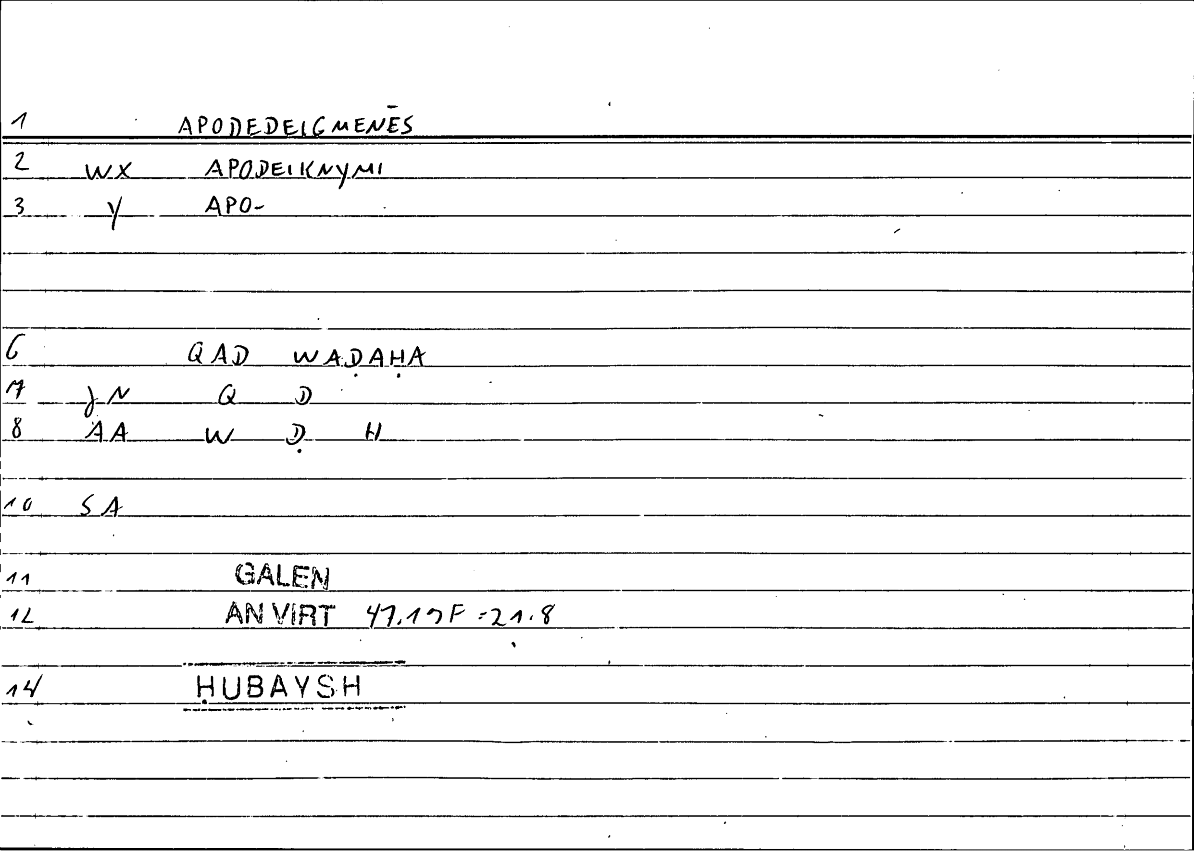 1 APODEDEIGMENĒS
2 WX APODEIKNYMI
3 Y APO-
6 QAD WAḌAḤA
7 JN Q D
8 AA W Ḍ H
10 SA
11 GALEN
12 AN VIRT 47.17F =21.8
14 ḤUBAYSH